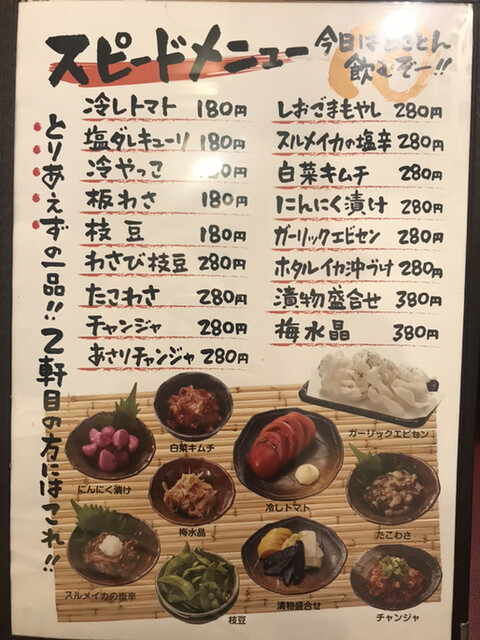 スピードメニュー
今日はとことん
飲むぞー!!
とりあえずの一品!! 2軒目の方にはこれ!!
冷しトマト 180円
塩ダレキューリ 180円
冷やっこ 180円
板わさ 180円
枝豆 180円
わさび枝豆 280円
たこわさ 280円
チャンジャ 280円
あさりチャンジャ 280円
しおごまもやし 280円
スルメイカの塩辛 280円
白菜キムチ 280円
にんにく漬け 280円
ガーリックエビセン 280円
ホタルイカ沖づけ 280円
漬物盛合せ 380円
梅水晶 380円
白菜キムチ
ガーリックエビセン
にんにく漬け
梅水晶
冷しトマト
たこわさ
スルメイカの塩辛
枝豆
漬物盛合せ
チャンジャ